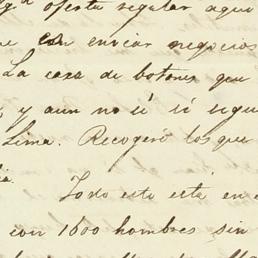 oferta regular aqui
en enviar negocios
La caxa de botones que
y aun no sé si sigue
Lima. Recogeré los que
Todo esto está en
con 1600 hombres sin